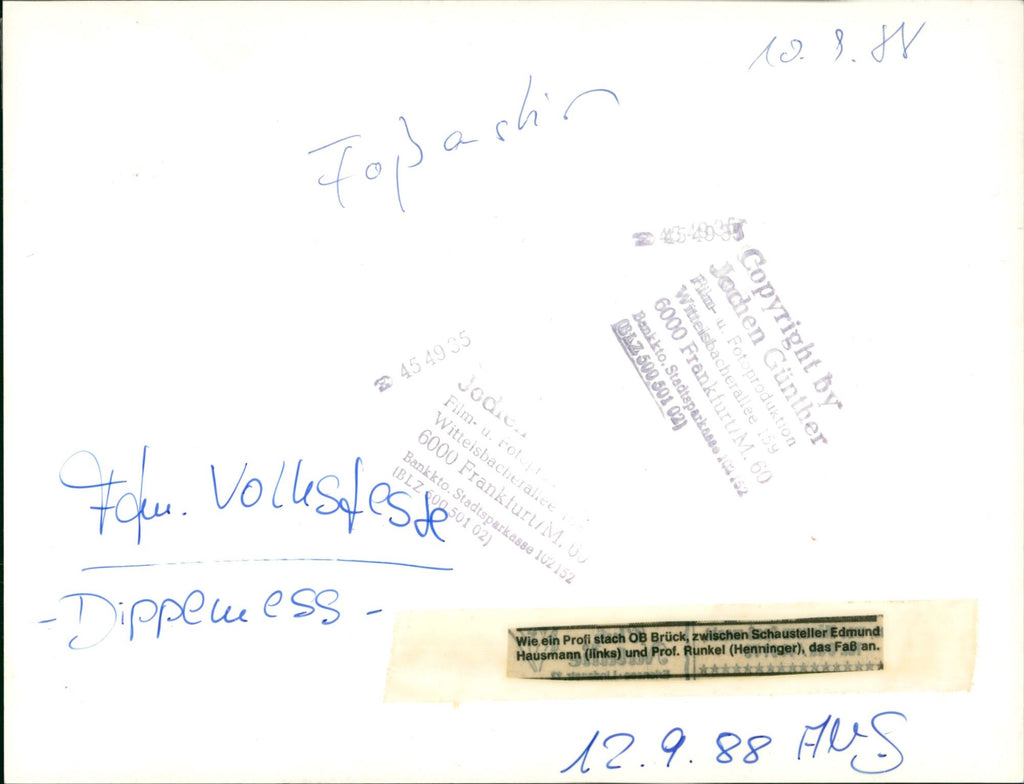 10. 9. 88
Faßanstich
☎ 45 49 35
Copyright by
Jochen Günther
Film- u. Fotoproduktion
Wittelsbacherallee 159
6000 Frankfurt/M. 60
Bankkto. Stadtsparkasse 102152
(BLZ 500 501 02)
☎ 45 49 35
Film- u.
Wittelsbacherallee
6000 Frankfurt/M. 60
Bankkto. Stadtsparkasse 102152
(BLZ 500 501 02)
Ffm. Volksfeste
- Dippemess -
Wie ein Profi stach OB Brück, zwischen Schausteller Edmund
Hausmann (links) und Prof. Runkel (Henninger), das Faß an.
12.9.88